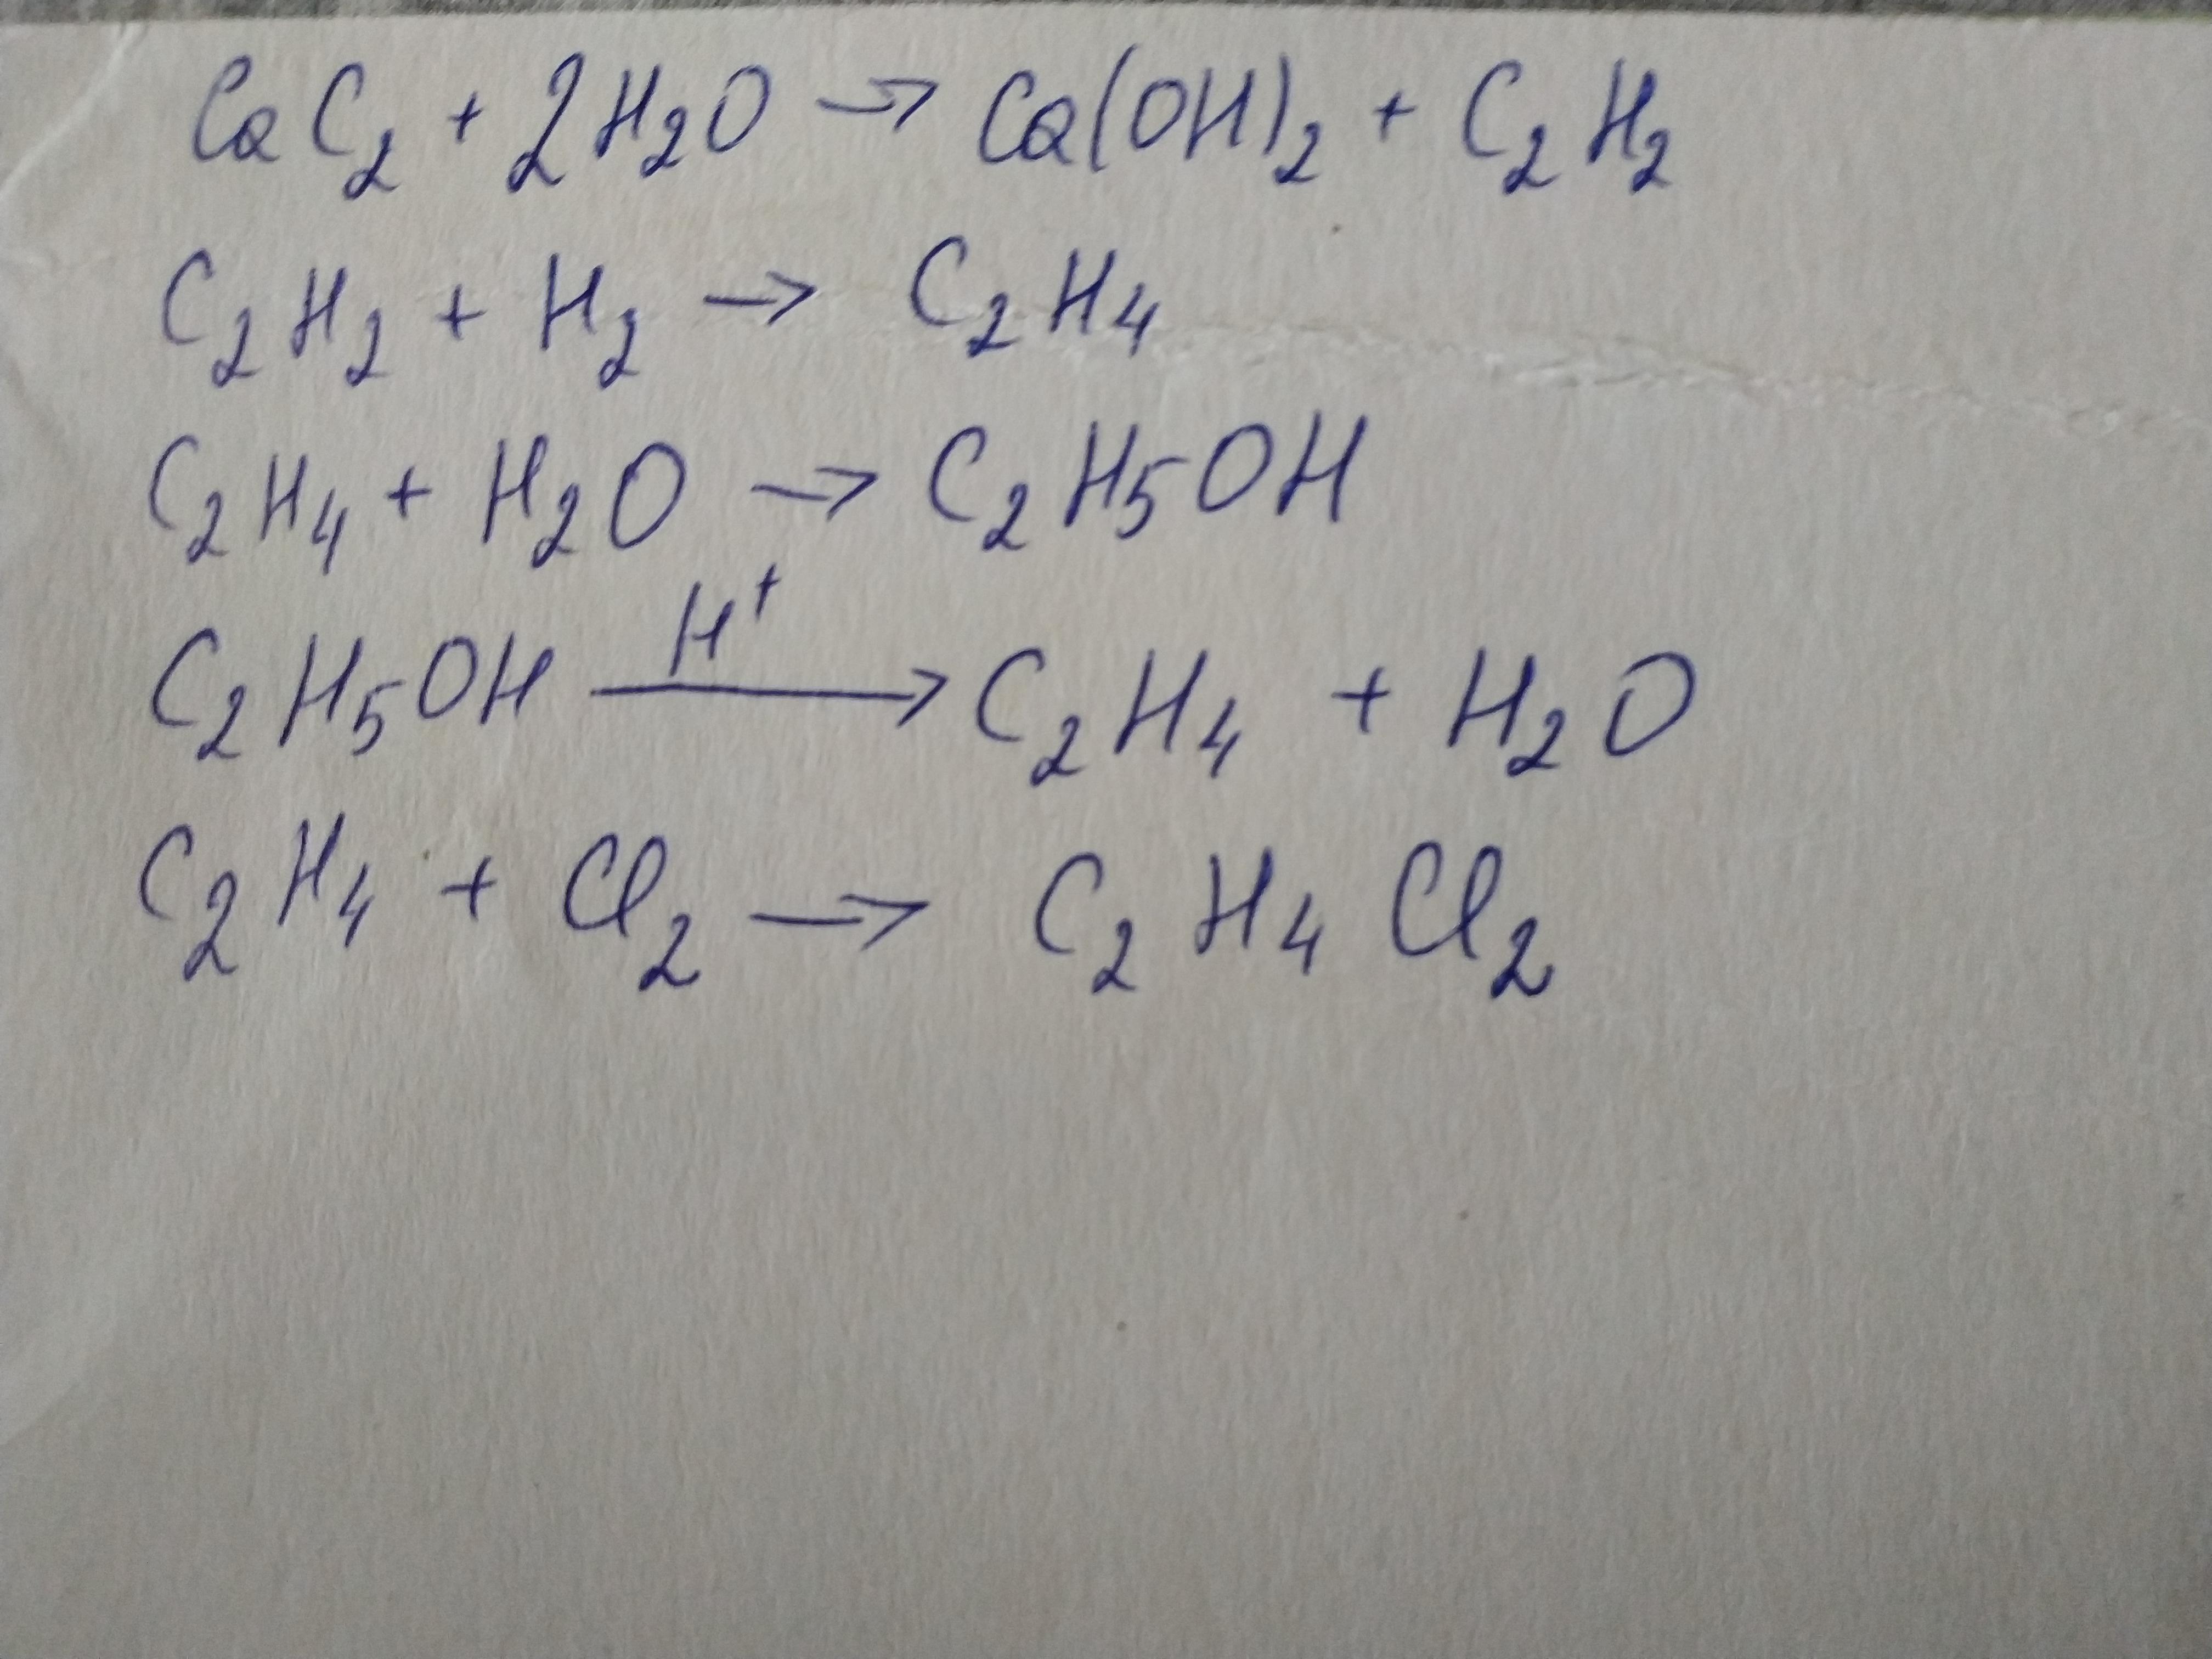 CaC₂ + 2H₂O → Ca(OH)₂ + C₂H₂
C₂H₂ + H₂ → C₂H₄
C₂H₄ + H₂O → C₂H₅OH
C₂H₅OH –H⁺→ C₂H₄ + H₂O
C₂H₄ + Cl₂ → C₂H₄Cl₂